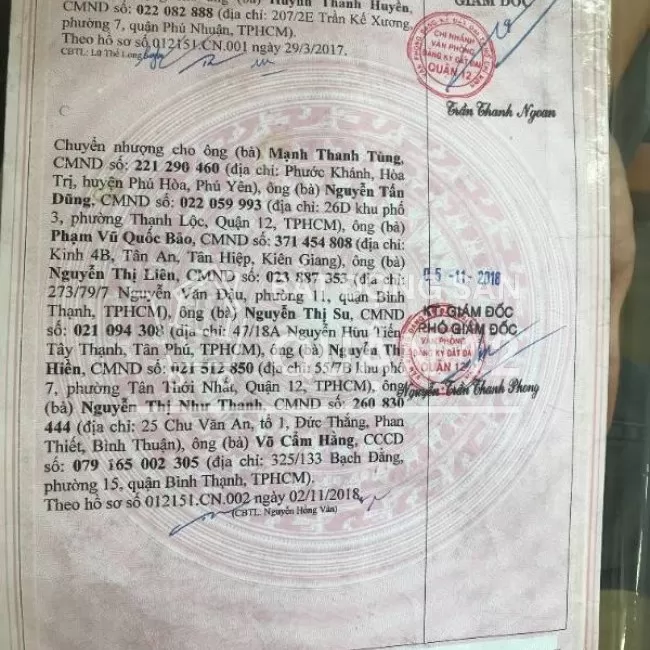 Huỳnh Thanh Huyền,
CMND số: 022 082 888 (địa chỉ: 207/2E Trần Kế Xương,
phường 7, quận Phú Nhuận, TPHCM).
Theo hồ sơ số 012151.CN.001 ngày 29/3/2017.
(CBTL: Lữ Thế Long)
GIÁM ĐỐC
CHI NHÁNH
VĂN PHÒNG
ĐĂNG KÝ ĐẤT ĐAI
QUẬN 12
Trần Thanh Ngoan
Chuyển nhượng cho ông (bà) Mạnh Thanh Tùng,
CMND số: 221 290 460 (địa chỉ: Phước Khánh, Hòa
Trị, huyện Phú Hòa, Phú Yên), ông (bà) Nguyễn Tấn
Dũng, CMND số: 022 059 993 (địa chỉ: 26D khu phố
3, phường Thạnh Lộc, Quận 12, TPHCM), ông (bà)
Phạm Vũ Quốc Bảo, CMND số: 371 454 808 (địa chỉ:
Kinh 4B, Tân An, Tân Hiệp, Kiên Giang), ông (bà)
Nguyễn Thị Liên, CMND số: 023 887 353 (địa chỉ:
273/79/7 Nguyễn Văn Đậu, phường 11, quận Bình
Thạnh, TPHCM), ông (bà) Nguyễn Thị Su, CMND
số: 021 094 308 (địa chỉ: 47/18A Nguyễn Hữu Tiến,
Tây Thạnh, Tân Phú, TPHCM), ông (bà) Nguyễn Thị
Hiền, CMND số: 021 512 850 (địa chỉ: 557B khu phố
7, phường Tân Thới Nhất, Quận 12, TPHCM), ông
(bà) Nguyễn Thị Như Thanh, CMND số: 260 830
444 (địa chỉ: 25 Chu Văn An, tổ 1, Đức Thắng, Phan
Thiết, Bình Thuận), ông (bà) Võ Cẩm Hằng, CCCD
số: 079 165 002 305 (địa chỉ: 325/133 Bạch Đằng,
phường 15, quận Bình Thạnh, TPHCM).
Theo hồ sơ số 012151.CN.002 ngày 02/11/2018.
(CBTL: Nguyễn Hồng Vân)
05 -11- 2018
KT. GIÁM ĐỐC
PHÓ GIÁM ĐỐC
VĂN PHÒNG
ĐĂNG KÝ ĐẤT ĐAI
QUẬN 12
Nguyễn Trần Thanh Phong